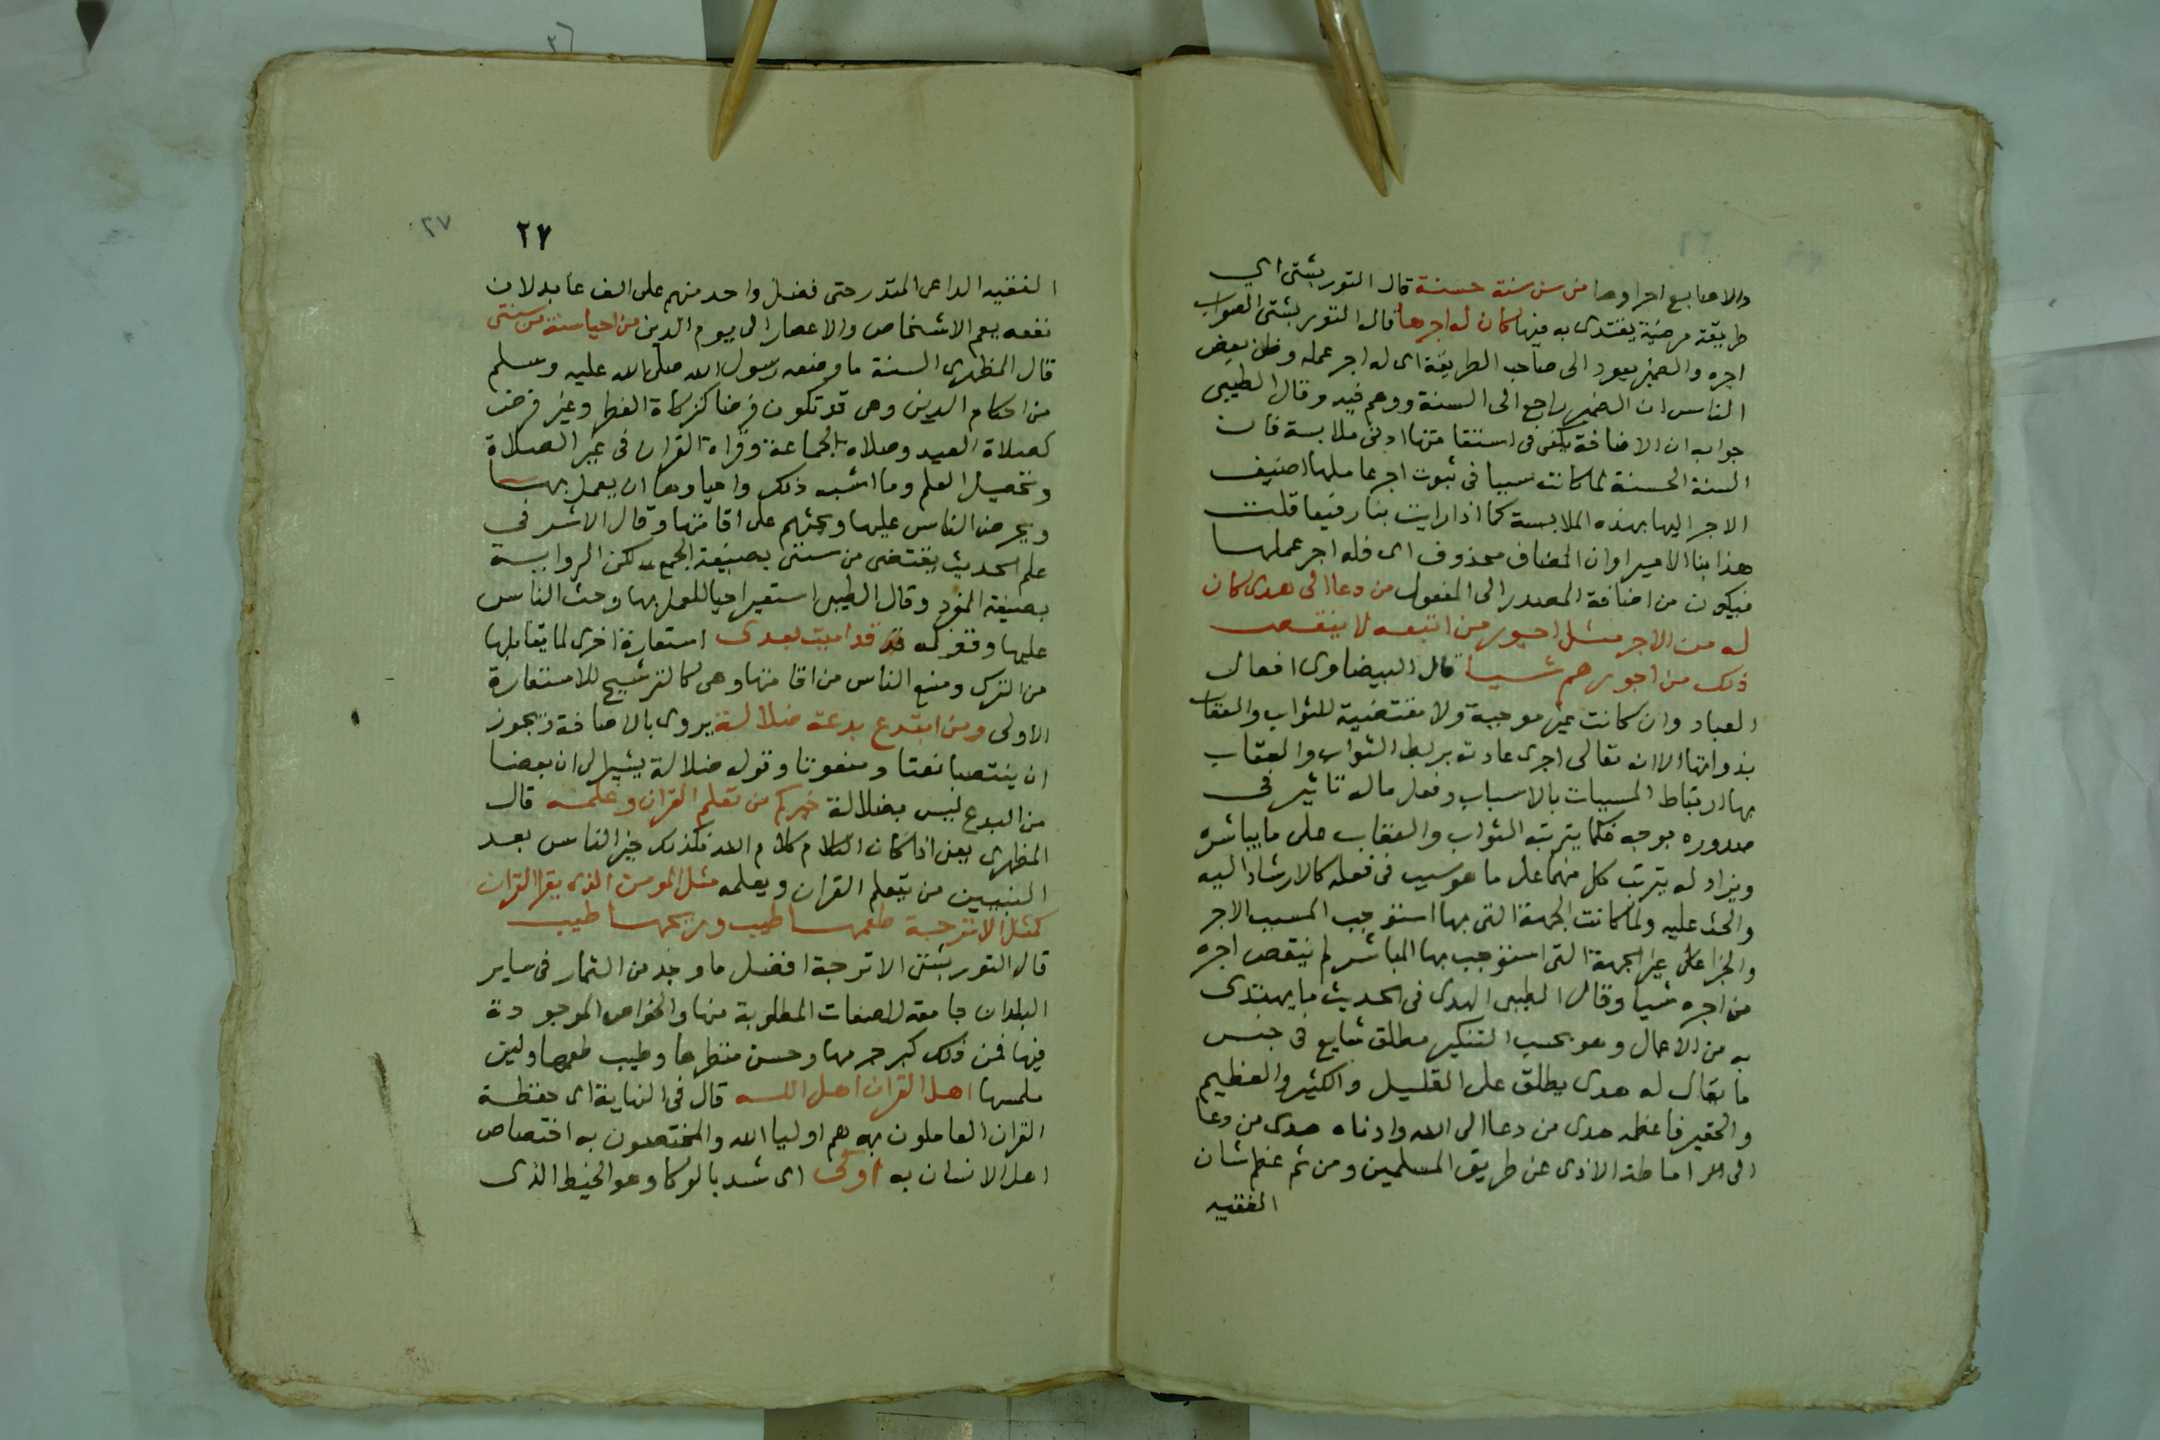 والاصابع اجراوها من سن سنة حسنة قال التوربشتى اى
طريقة مرضية يقتدى به فيها كان له اجرها قال التوربشتى الصواب
اجره والضمير يعود الى صاحب الطريقة اى له اجر عمله وظن بعض
الناس ان الضمير راجع الى السنة ووهم فيه وقال الطيبى
جوابه ان الاضافة يكفى فى استقامتها ادنى ملابسة فان
السنة الحسنة لما كانت سببا فى ثبوت اجر عاملها اضيف
الاجر اليها بهذه الملابسة كما اذا رايت بنا رفيعا قلت
هذا بنا الامير او ان المضاف محذوف اى فله اجر عملها
فيكون من اضافة المصدر الى المفعول من دعا الى هدى كان
له من الاجر مثل اجور من اتبعه لا ينقص
ذلك من اجورهم شيا قال البيضاوى افعال
العباد وان كانت غير موجبة ولا مقتضية للثواب والعقاب
بذواتها الا ان الله تعالى اجرى عادته بربط الثواب والعقاب
بها ارتباط المسببات بالاسباب وفعل ماله تاثير فى
صدوره بوجه فكما يترتب الثواب والعقاب على ما يباشره
ويزاوله يترتب كل منهما على ما هو سبب فى فعله كالارشاد اليه
والحث عليه ولما كانت الجهة التى بها استوجب المسبب الاجر
والجزا على غير الجهة التى استوجب بها المباشر لم ينقص اجره
من اجره شيا وقال الطيبى الهدى فى الحديث ما يهتدى
به من الاعمال وهو بحسب التنكير مطلق شايع فى جنس
ما يقال له هدى يطلق على القليل والكثير والعظيم
والحقير فاعظمه هدى من دعا الى الله وادناه هدى من دعا
الى اماطة الاذى عن طريق المسلمين ومن ثم عظم شان
الفقيه
٢٧
٢٧
الفقيه الداعى المنذر حتى فضل واحد منهم على الف عابد لان
نفعه يعم الاشخاص والاعصار الى يوم الدين من احيا سنة من سنتى
قال المظهرى السنة ما وضعه رسول الله صلى الله عليه وسلم
من احكام الدين وهى قد تكون فرضا كزكاة الفطر وغير فرض
كصلاة العيد وصلاه الجماعة وقراة القران فى غير الصلاة
وتحصيل العلم وما اشبه ذلك واحياوها ان يعمل بها
ويحرض الناس عليها ويحثهم على اقامتها وقال الاشرفى
علم الحديث يقتضى من سنتى بصيغة الجمع لكن الرواية
بصيغة المفرد وقال الطيبى استعير احيا للعمل بها وحث الناس
عليها وقوله قد اميتت بعدى استعارة اخرى لما يقابلها
من الترك ومنع الناس من اقامتها وهى كالترشيح للاستعارة
الاولى ومن ابتدع بدعة ضلالة يروى بالاضافة ويجوز
ان ينتصبا نعتا ومنعوتا وقوله ضلالة يشير الى ان بعضا
من البدع ليس بضلالة خيركم من تعلم القران وعلمه قال
المظهرى يعنى اذا كان الكلام كلام الله فكذلك خير الناس بعد
النبيين من يتعلم القران ويعلمه مثل المومن الذى يقرا القران
كمثل الاترجة طعمها طيب وريحها طيب
قال التوربشتى الاترجة افضل ما وجد من الثمار فى ساير
البلدان جامعة للصفات المطلوبة منها والخواص الموجودة
فيها فمن ذلك كبر جرمها وحسن منظرها وطيب طعمها ولين
ملمسها اهل القران اهل الله قال فى النهاية اى حفظة
القران العاملون به هم اوليا الله والمختصون به اختصاص
اهل الانسان به اوكى اى شد بالوكا وهو الخيط الذى